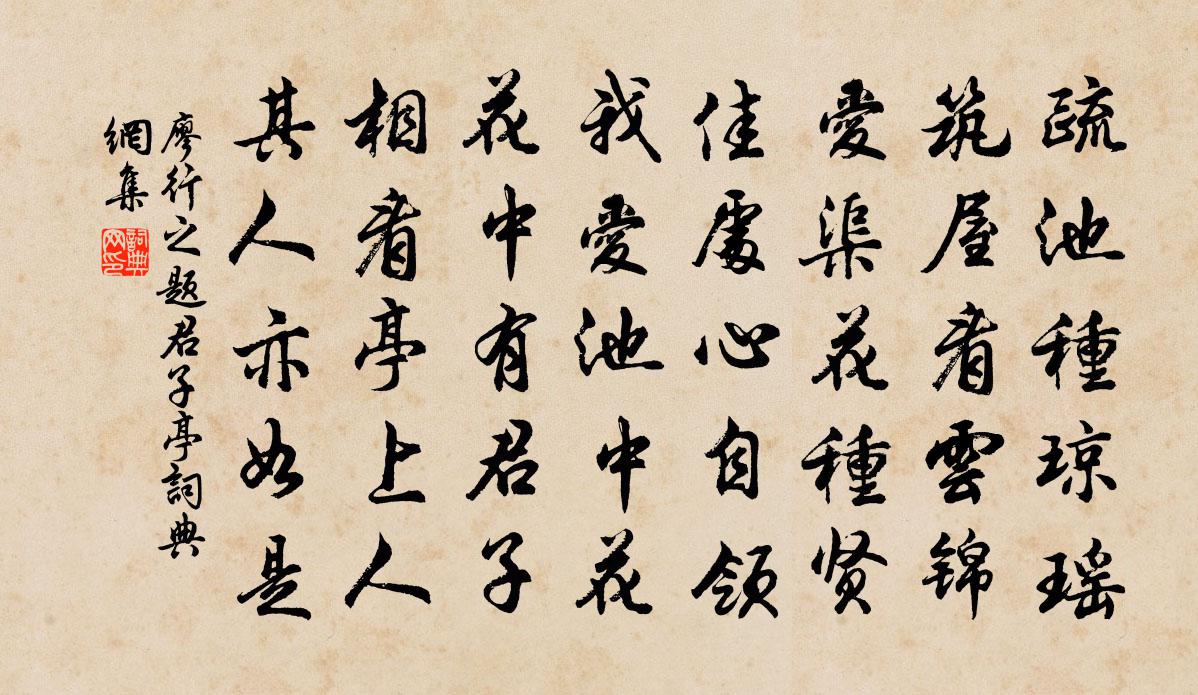 疏池種琼瑶
筑屋看雲锦
愛渠花種贤
佳處心自领
我愛池中花
花中有君子
相看亭上人
其人亦如是
廖行之题君子亭詞典
網集
詞典网印